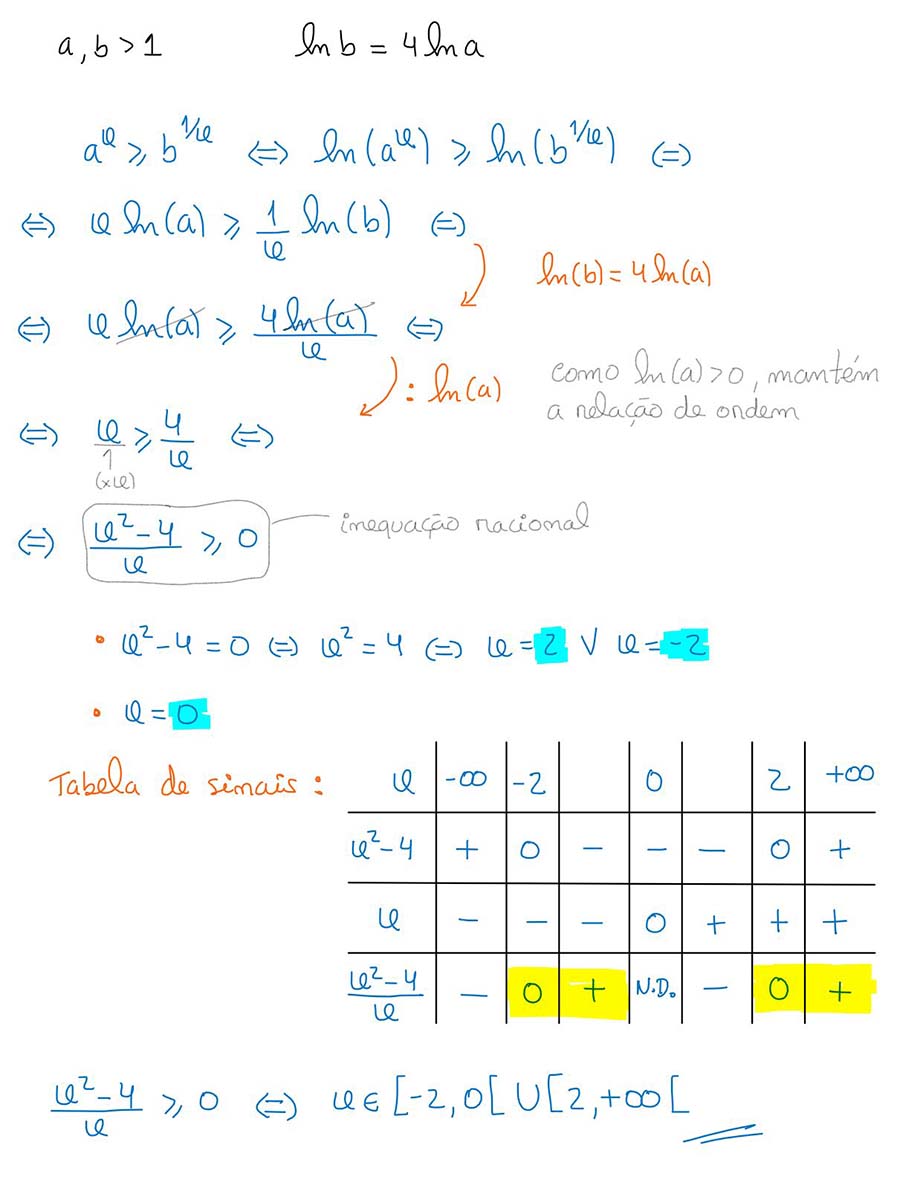 a, b > 1 ln b = 4 ln a
a^x ⩾ b^{1/x} ⇔ ln(a^x) ⩾ ln(b^{1/x}) ⇔
⇔ x ln(a) ⩾ 1/x ln(b) ⇔
ln(b) = 4 ln(a)
⇔ x ln(a) ⩾ 4 ln(a)/x ⇔
: ln(a) como ln(a) > 0, mantém
a relação de ordem
⇔ x/1 ⩾ 4/x ⇔
(×x)
⇔ (x² − 4)/x ⩾ 0 inequação racional
• x² − 4 = 0 ⇔ x² = 4 ⇔ x = 2 ∨ x = −2
• x = 0
Tabela de sinais:
x −∞ −2 0 2 +∞
x² − 4 + 0 − − − 0 +
x − − − 0 + + +
(x² − 4)/x − 0 + N.D. − 0 +
(x² − 4)/x ⩾ 0 ⇔ x ∈ [−2, 0[ ∪ [2, +∞[